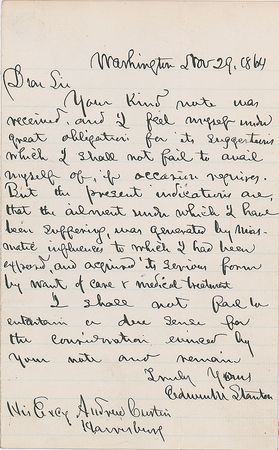 Washington Nov 29, 1864
Dear Sir
Your kind note was
received, and I feel myself under
great obligation for its suggestions
which I shall not fail to avail
myself of, if occasion requires.
But the present indications are,
that the ailment under which I have
been suffering, was generated by mias-
matic influences to which I had been
exposed, and acquired its serious form
by want of care & medical treatment
I shall not fail to
entertain a due sense for
the consideration evinced by
your note and remain
Truly Yours
Edwin M Stanton
His Excy Andrew Curtin
Harrisburg